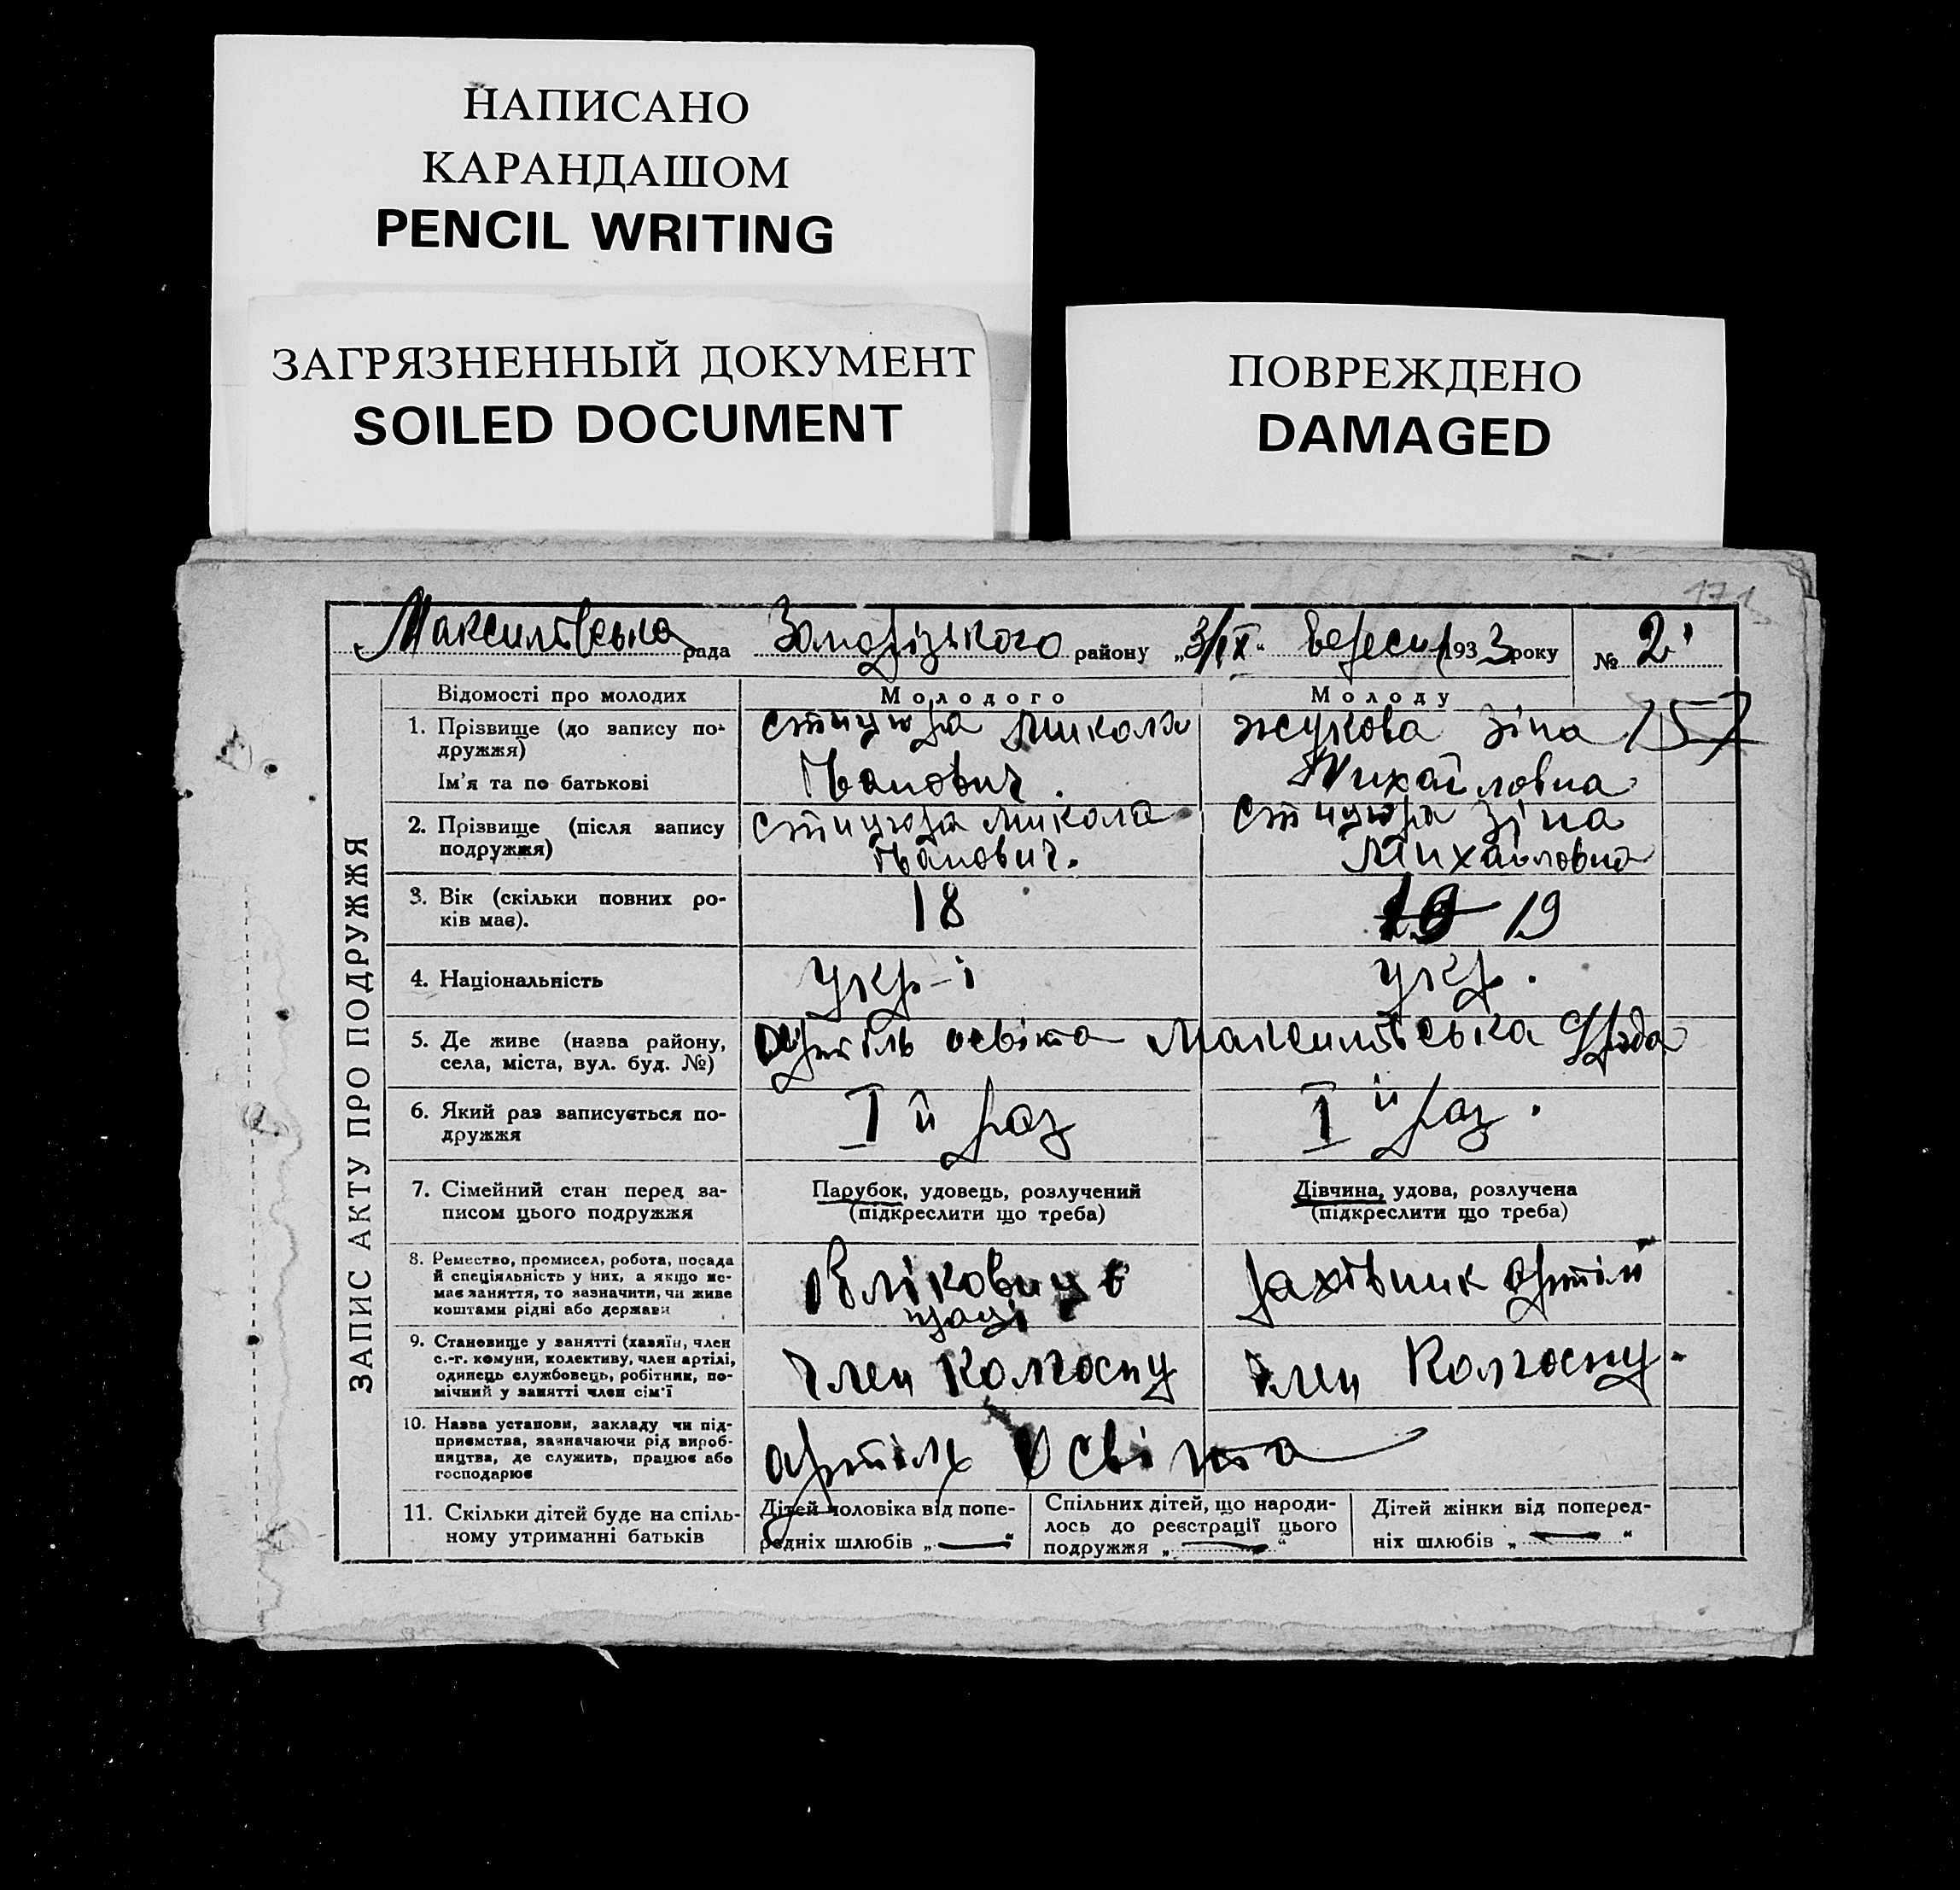 НАПИСАНО
КАРАНДАШОМ
PENCIL WRITING
ЗАГРЯЗНЕННЫЙ ДОКУМЕНТ
SOILED DOCUMENT
ПОВРЕЖДЕНО
DAMAGED
171
Максимівська рада Запорізького району „3/IX“ вересня 1933 року № 2
ЗАПИС АКТУ ПРО ПОДРУЖЖЯ
Відомості про молодих Молодого Молоду
1. Прізвище (до запису по-
дружжя)
Ім'я та по батькові
стицюра микола
Іванович.
жукова Зіна
Михайловна
157
2. Прізвище (після запису
подружжя)
стицюра микола
Іванович.
стицюра зіна
Михайловна
3. Вік (скільки повних ро-
ків має).
18
19
4. Національність
укр-і
укр.
5. Де живе (назва району,
села, міста, вул. буд. №)
артіль освіта Максимівська С/рада
6. Який раз записується по-
дружжя
I й раз
I й раз.
7. Сімейний стан перед за-
писом цього подружжя
Парубок, удовець, розлучений
(підкреслити що треба)
Дівчина, удова, розлучена
(підкреслити що треба)
8. Ремество, промисел, робота, посада
й спеціяльність у них, а якщо не-
має заняття, то зазначити, чи живе
коштами рідні або держави
праці
рахівник артілі
9. Становище у занятті (хазяїн, член
с.-г. комуни, колективу, член артілі,
одинець службовець, робітник, по-
мічний у занятті член сім'ї
член колгоспу
член колгоспу.
10. Назва установи, закладу чи під-
приємства, зазначаючи рід вироб-
ництва, де служить, працює або
господарює
артіль Освіта
11. Скільки дітей буде на спіль-
ному утриманні батьків
Дітей чоловіка від попе-
редніх шлюбів „—“
Спільних дітей, що народи-
лось до реєстрації цього
подружжя „—“
Дітей жінки від поперед-
ніх шлюбів „—“